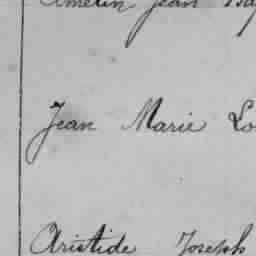 Amelin Jean Ba
Jean Marie Lo
Aristide Joseph